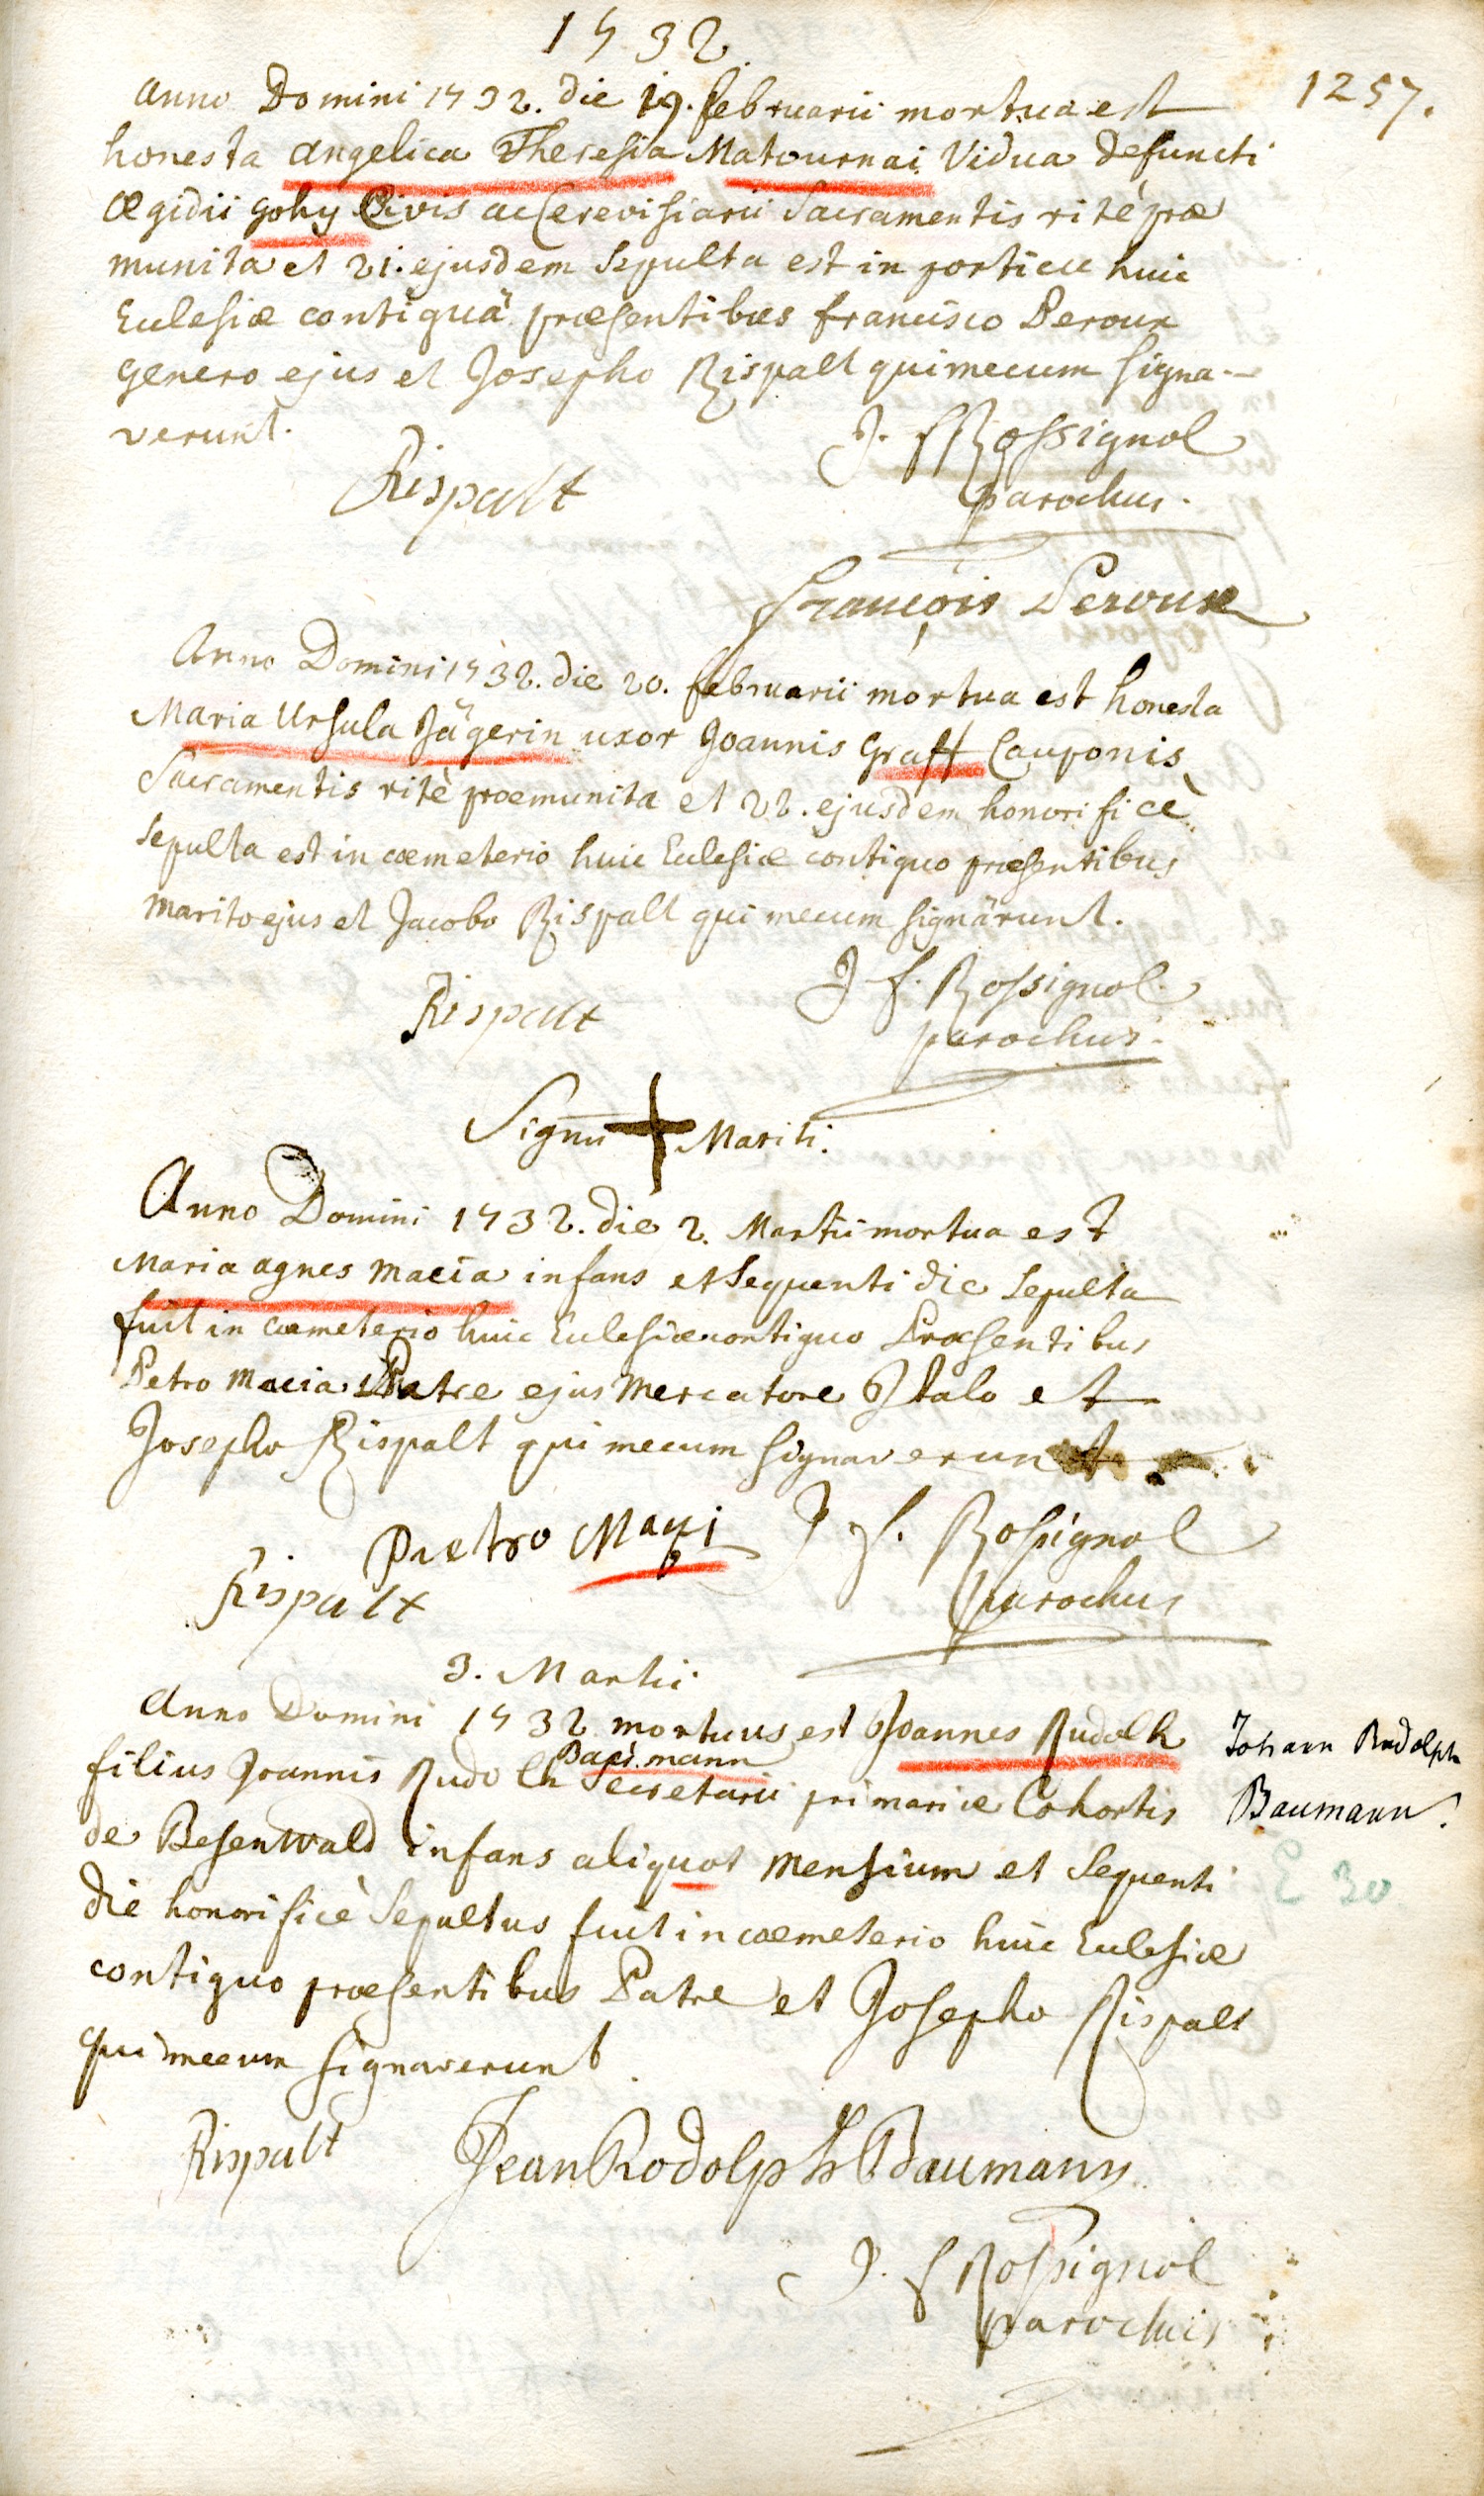 1732
1257.
Anno Domini 1732. die 19. februarii mortua est
honesta Angelica Theresia Matournai Vidua defuncti
Ægidii gohy Civis ac Cerevisiarii Sacramentis ritè præ
munita et 21. ejusdem Sepulta est in porticu huic
Ecclesiæ contiguâ præsentibus francisco Peroux
genero ejus et Josepho Rispalt qui mecum signa-
verunt.
J. f Rossignol
Rispalt
parochus.
François Peroux
Anno Domini 1732. die 20. februarii mortua est honesta
Maria Ursula Jägerin uxor Joannis Graff Cauponis
Sacramentis ritè præmunita et 22. ejusdem honorificè
sepulta est in cæmeterio huic Ecclesiæ contiguo præsentibus
marito ejus et Jacobo Rispalt qui mecum signârunt.
J f. Rossignol
Rispalt
parochus.
Signū + Mariti.
Anno Domini 1732. die 2. Martii mortua est
Maria agnes Macia infans et Sequenti die Sepulta
fuit in cæmeterio huic Ecclesiæ contiguo Præsentibus
Petro Macia Patre ejus Mercatore Italo et
Josepho Rispalt qui mecum signaverunt
Pietro Maçi J f. Rossignol
Rispalt
parochus
3. Martii.
Anno Domini 1732 mortuus est Joannes Rudolh
Johann Rudolph
Baumann
filius Joannis Rudolh Secretarii primariæ Cohortis
Baumann.
de Besenwald infans aliquot mensium et Sequenti
E 30
die honorificè Sepultus fuit in cæmeterio huic Ecclesiæ
contiguo præsentibus Patre et Josepho Rispalt
qui mecum signaverunt
Rispalt Jean Rodolph Baumann
J. f Rossignol
parochus